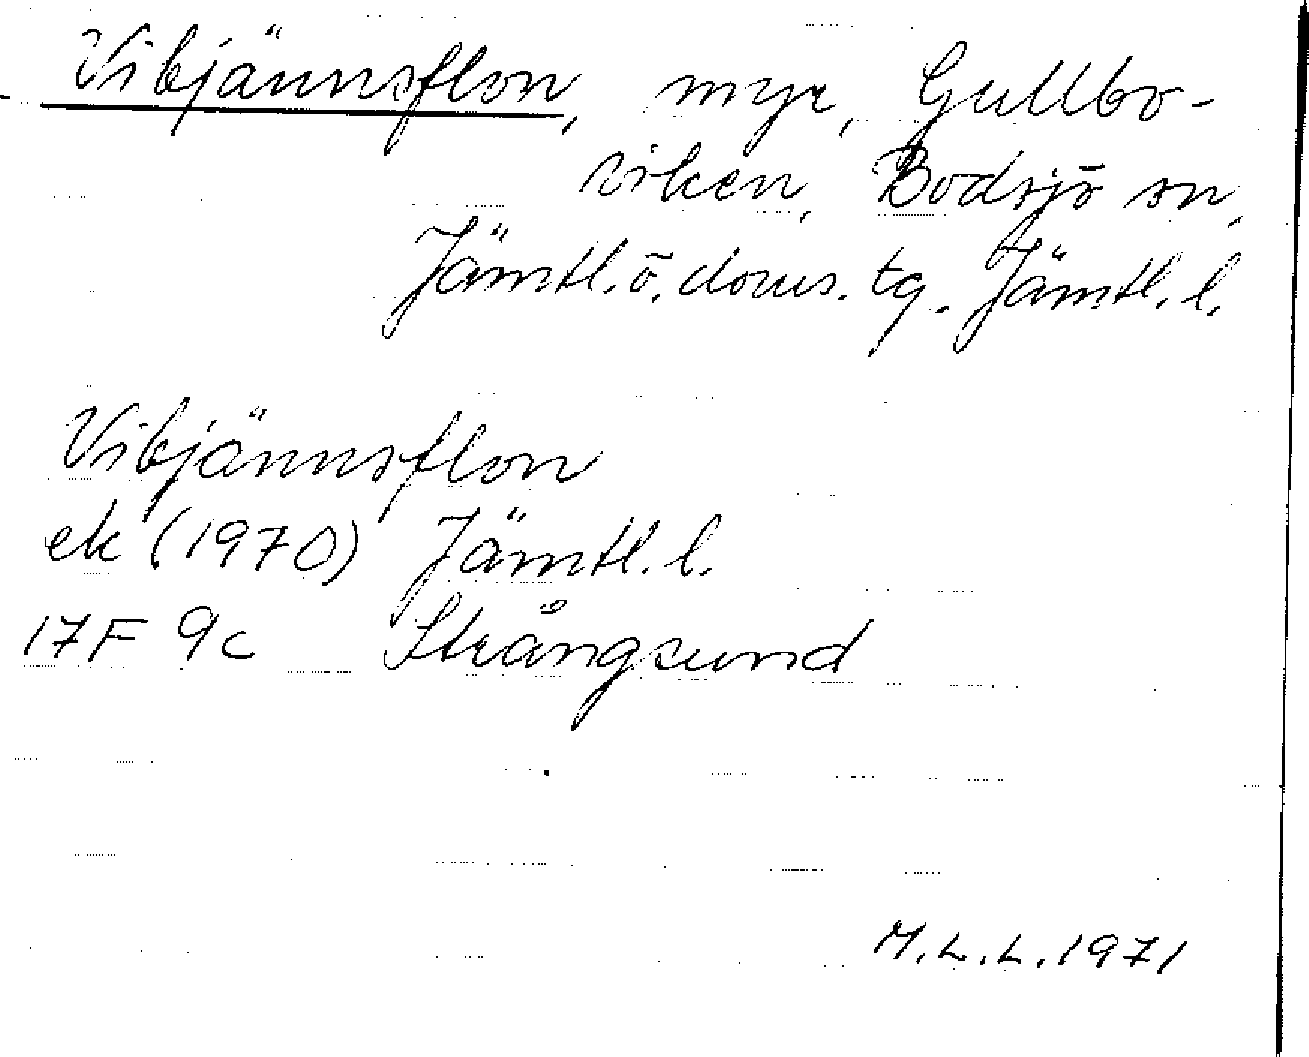 Vibjännsflon, myr, Gullbo-
viken, Bodsjö sn,
Jämtl. ö. doms. tg. Jämtl. l.
Vibjännsflon
ek (1970) Jämtl. l.
17F 9c Strångsund
M.L.L. 1971